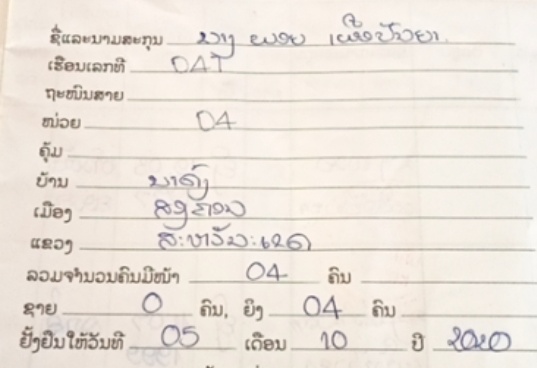 ຊື່ແລະນາມສະກຸນ ນາງ ພອຍ
ເຮືອນເລກທີ 047
ຖະໜົນສາຍ
ໜ່ວຍ 04
ຄຸ້ມ
ບ້ານ ນາຄັງ
ເມືອງ
ແຂວງ ສະຫວັນນະເຂດ
ລວມຈຳນວນຄົນມີໜ້າ 04 ຄົນ
ຊາຍ 0 ຄົນ, ຍິງ 04 ຄົນ
ຢັ້ງຢືນໃຫ້ວັນທີ 05 ເດືອນ 10 ປີ 2020